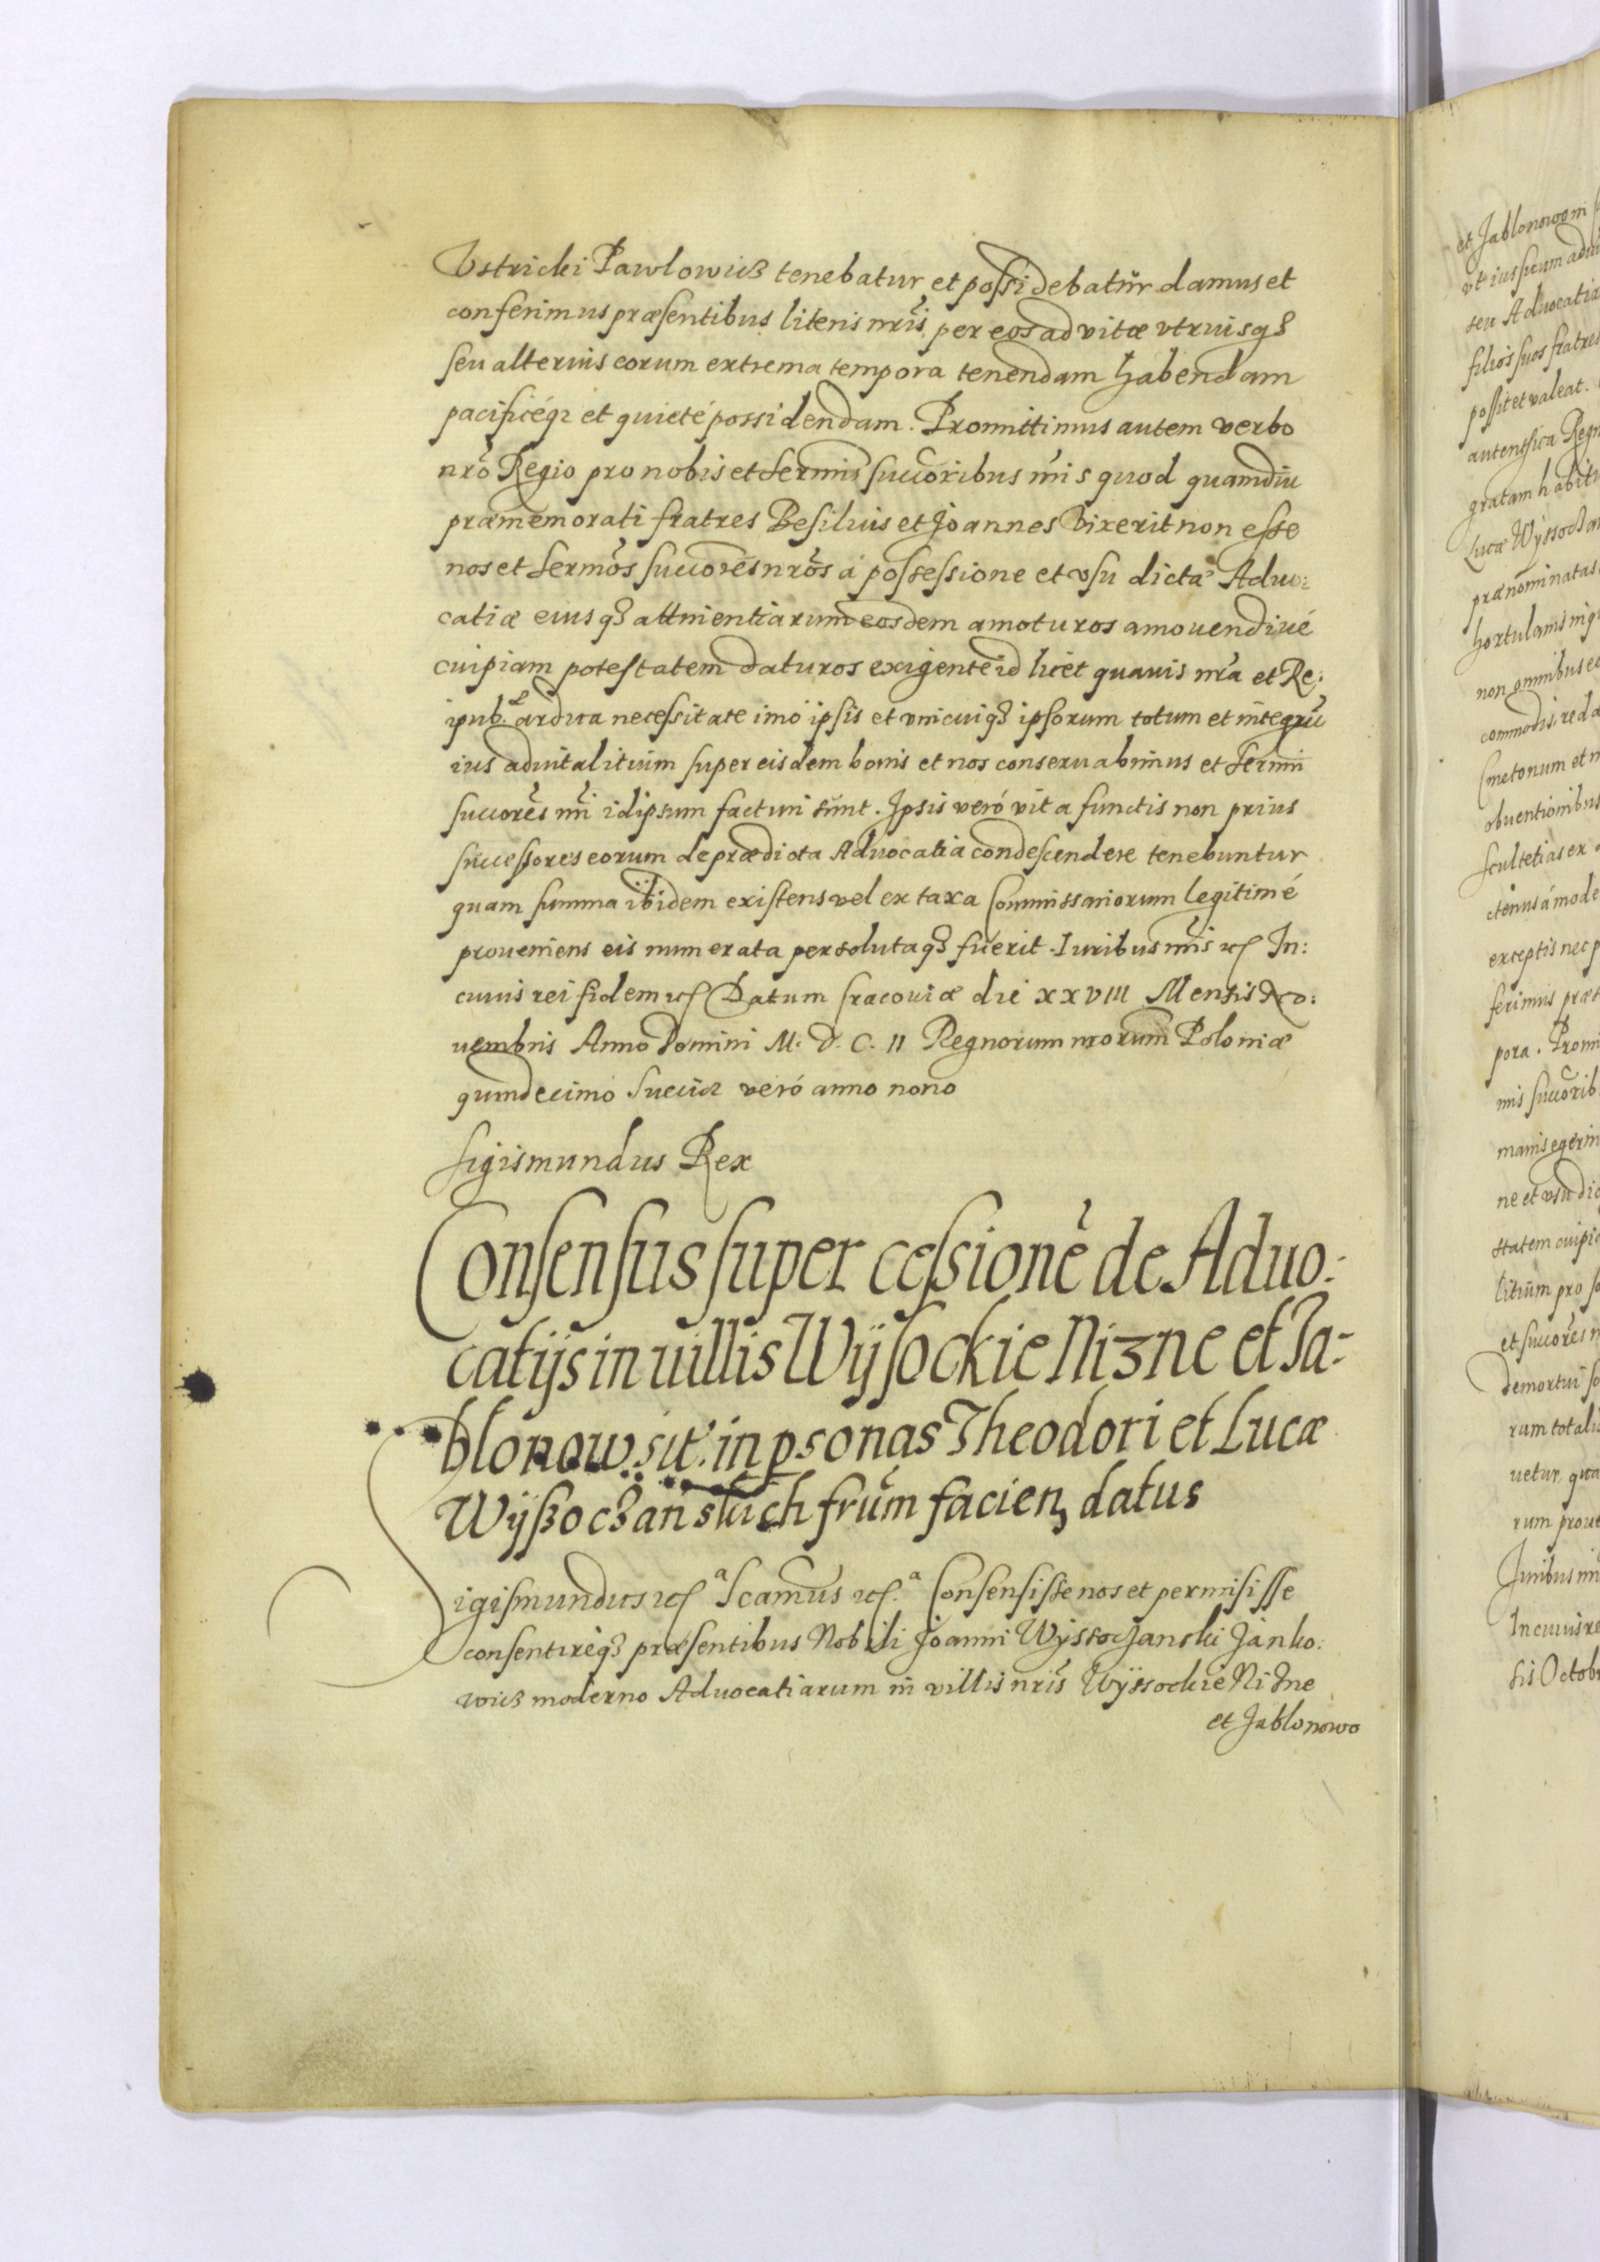 Vstricki Pawlowicz tenebatur et possidebatur damus et
conferimus præsentibus literis nris per eos ad vitæ vtriusqꝫ
seu alterius eorum extrema tempora tenendam habendam
pacificéqꝫ et quieté possidendam. Promittimus autem verbo
nrō Regio pro nobis et Sermis succoribus nris quod quamdiu
præmemorati fratres Besilius et Joannes Vixerit non esse
nos et Sermos succores nros á possessione et vsu dictæ Aduo:
catiæ eiusqꝫ attinentiarum eosdem amoturos amouendiué
cuipiam potestatem daturos exigente id licet quauis nra et Re:
ipub. ardua necessitate imó ipsis et vnicuiqꝫ ipsorum totum et integrū
ius aduitalitium super eisdem bonis et nos conseruabimus et Sermi
succores nri idipsum facturi sunt. Ipsis veró vita functis non prius
successores eorum de prædicta Aduocatia condescendere tenebuntur
quam summa ibidem existens vel ex taxa Commissariorum legitimé
proueniens eis numerata persolutaqꝫ fuerit. Iuribus nris etc In:
cuius rei fidem etc Datum Cracouiæ die XXVIII Mensis No:
uembris Anno Domini M. D. C. II Regnorum nrorum Poloniæ
quindecimo Sueciæ veró anno nono
Sigismundus Rex
Consensus super cessionē de Aduo:
catijs in uillis Wÿsockie Niʒne et Ja-
blonow sit. in psonas Theodori et Lucæ
Wÿszoczanskich frum facien datus
Sigismundus etc Scamus etc. Consensisse nos et permisisse
consentireqꝫ præsentibus Nobili Joanni Wyssoczanski Janko:
wicz moderno Aduocatiarum in villis nris Wÿssockie Niʒne
et Jablonowo
et Jablonowo
vt ius suum
seu Aduocatia
filios suos fratres
possit et valeat.
autentica
gratam
Lucæ
prænominatas
hortulanis
non omnibus
commodis
Cmetonum et
obuentionibus
scultetias ex
exceptis nec
ferimus
pora.
ne et vsu
statem
litium pro
et succores
demortui
ram
uetur
rum
Iuribus
In cuius
sis Octob